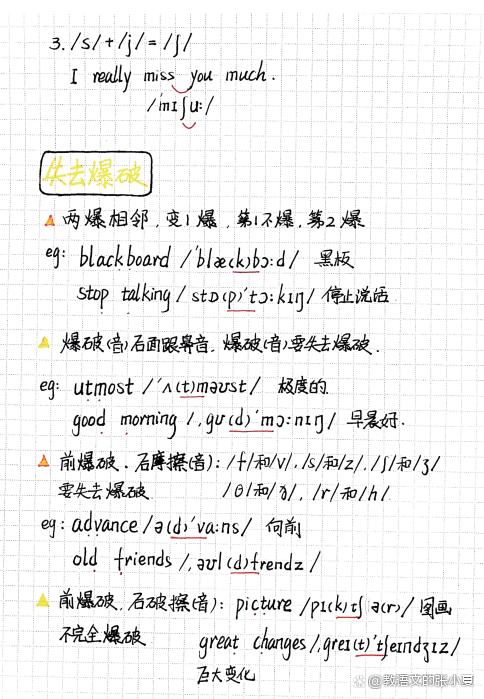 3. /s/+/j/=/ʃ/
I really miss you much.
/ˈmɪʃuː/
失去爆破
两爆相邻,变1爆,第1不爆,第2爆
eg: blackboard /ˈblæ(k)bɔːd/ 黑板
stop talking/stɒ(p)ˈtɔːkɪŋ/ 停止说话
爆破(音)后面跟鼻音,爆破(音)要失去爆破.
eg: utmost /ˈʌ(t)məʊst/ 极度的.
good morning /ˌgʊ(d)ˈmɔːnɪŋ/ 早晨好.
前爆破、后摩擦(音):/f/和/v/,/s/和/z/,/ʃ/和/ʒ/
要失去爆破 /θ/和/ð/,/r/和/h/
eg: advance/ə(d)ˈvaːns/ 向前
old friends /ˌəʊl(d)frendz/
前爆破,后破擦(音): picture /pɪ(k)tʃə(r)/ 图画
不完全爆破 great changes/ˌgreɪ(t)ˈtʃeɪndʒɪz/
巨大变化
@教语文的张小夏